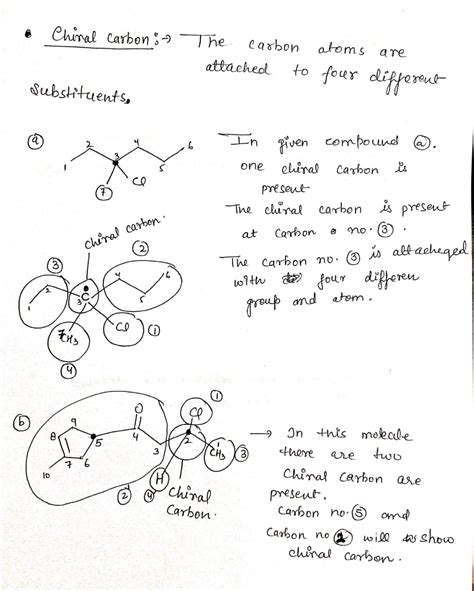 Chiral carbon :→ The carbon atoms are
attached to four different
substituents.
(a)
1 2 3 4 5 6
7
Cl
In given compound (a).
one chiral carbon is
present
The chiral carbon is present
at carbon no. (3).
The carbon no. (3) is attacheged
with four differen
group and atom.
chiral carbon.
(3) (2)
1 2 3 C 4 5 6
7 CH3
Cl (1)
(4)
(b)
(1)
Cl
O
9 8 5 4 3 2 1
CH3 (3)
10 7 6
H
(2) (4) Chiral
Carbon.
→ In this molecule
there are two
Chiral Carbon are
present.
Carbon no. (5) and
Carbon no (2) will show
chiral carbon.